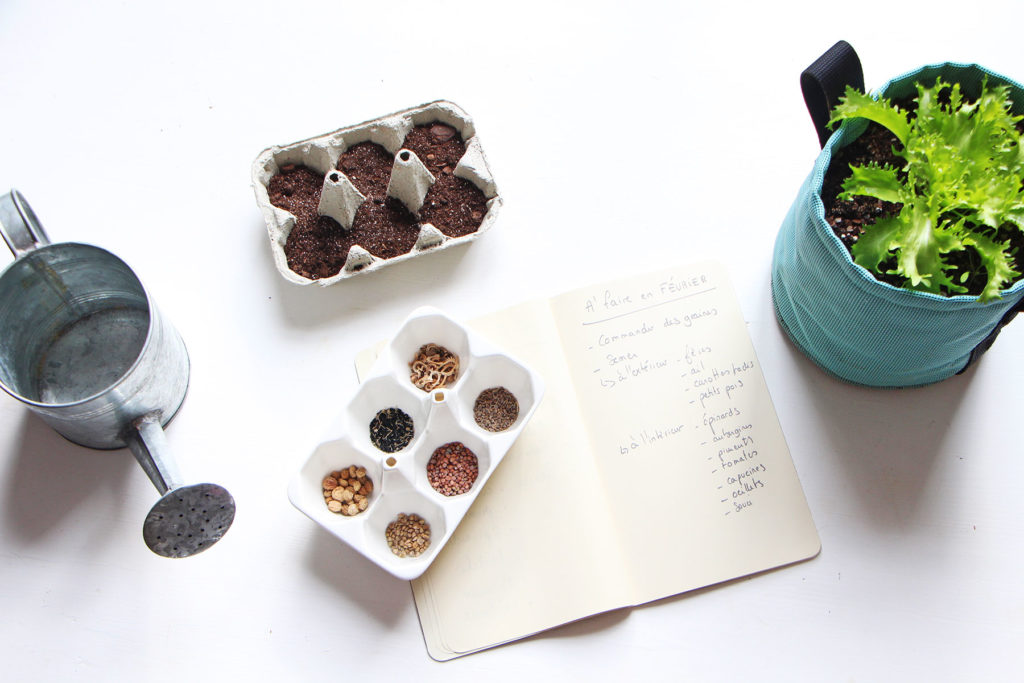 A' faire en FÉVRIER
- Commander des graines
- Semer
↳ à l'extérieur - fèves
- ail
- carottes rades
- petits pois
↳ à l'intérieur - épinards
- aubergines
- piments
- tomates
- capucines
- oeillets